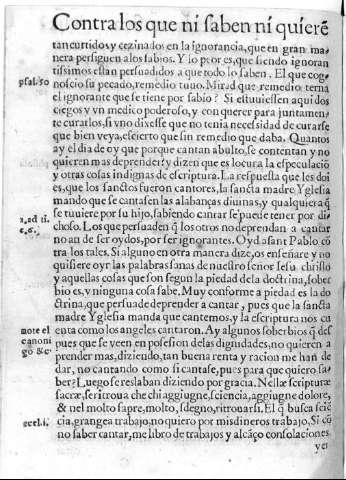 Contra los que ni saben ni quierẽ
tan curtidos, y cezinados en la ignorancia, que en gran ma-
nera persiguen a los sabios. Y lo peor es, que siendo ignoran
tissimos estan persuadidos a que todo lo saben. El que cog-
psal. 50
noscio su pecado, remedio tuuo. Mirad que remedio terna
el ignorante que se tiene por sabio? Si estuuiessen aqui dos
ciegos y vn medico poderoso, y con querer para juntamen-
te curarlos, si vno dixesse que no tenia necessidad de curarse
que bien veya, es cierto que sin remedio que daba. Quantos
ay el dia de oy que porque cantan abulto, se contentan y no
quieren mas deprender: y dizen que es locura la especulaciõ
y otras cosas indignas de escriptura. La respuesta que les doi
es, que los sanctos fueron cantores, la sancta madre Yglesia
mando que se cantasen las alabanças diuinas, y qualquiera q̃
se tuuiere por su hijo, sabiendo cantar se puede tener por di-
2. ad ti.
c. 6.
choso. Los que persuaden q̃ los otros no deprendan a cantar
no an de ser oydos, por ser ignorantes. Oyd a sant Pablo cõ
tra los tales. Si alguno en otra manera dize, os enseñare y no
quisiere oyr las palabras sanas de nuestro señor Iesu christo
y aquellas cosas que son segun la piedad de la doctrina, sober
bio es, y ninguna cosa sabe. Muy conforme a piedad es la do
ctrina, que persuade deprender a cantar, pues que la sancta
madre Yglesia manda que cantemos, y la escriptura nos cu
note el
canoni
go &c.
enta como los angeles cantaron. Ay algunos soberbios q̃ des
pues que se veen en posesion de las dignidades, no quieren a
prender mas, diziendo, tan buena renta y racion me han de
dar, no cantando como si cantase, pues para que quiero sa-
ber? Luego se reslaban diziendo por gracia. Nellæ scripturæ
sacræ, se ritroua che chi aggiugne, sciencia, aggiugne dolore,
& nel molto sapre, molto, sdegno, ritrouarsi. El q̃ busca sciẽ
eccl. i.
cia, grangea trabajo, no quiero por mis dineros trabajo. Si cõ
no saber cantar, me libro de trabajos y alcãço consolaciones